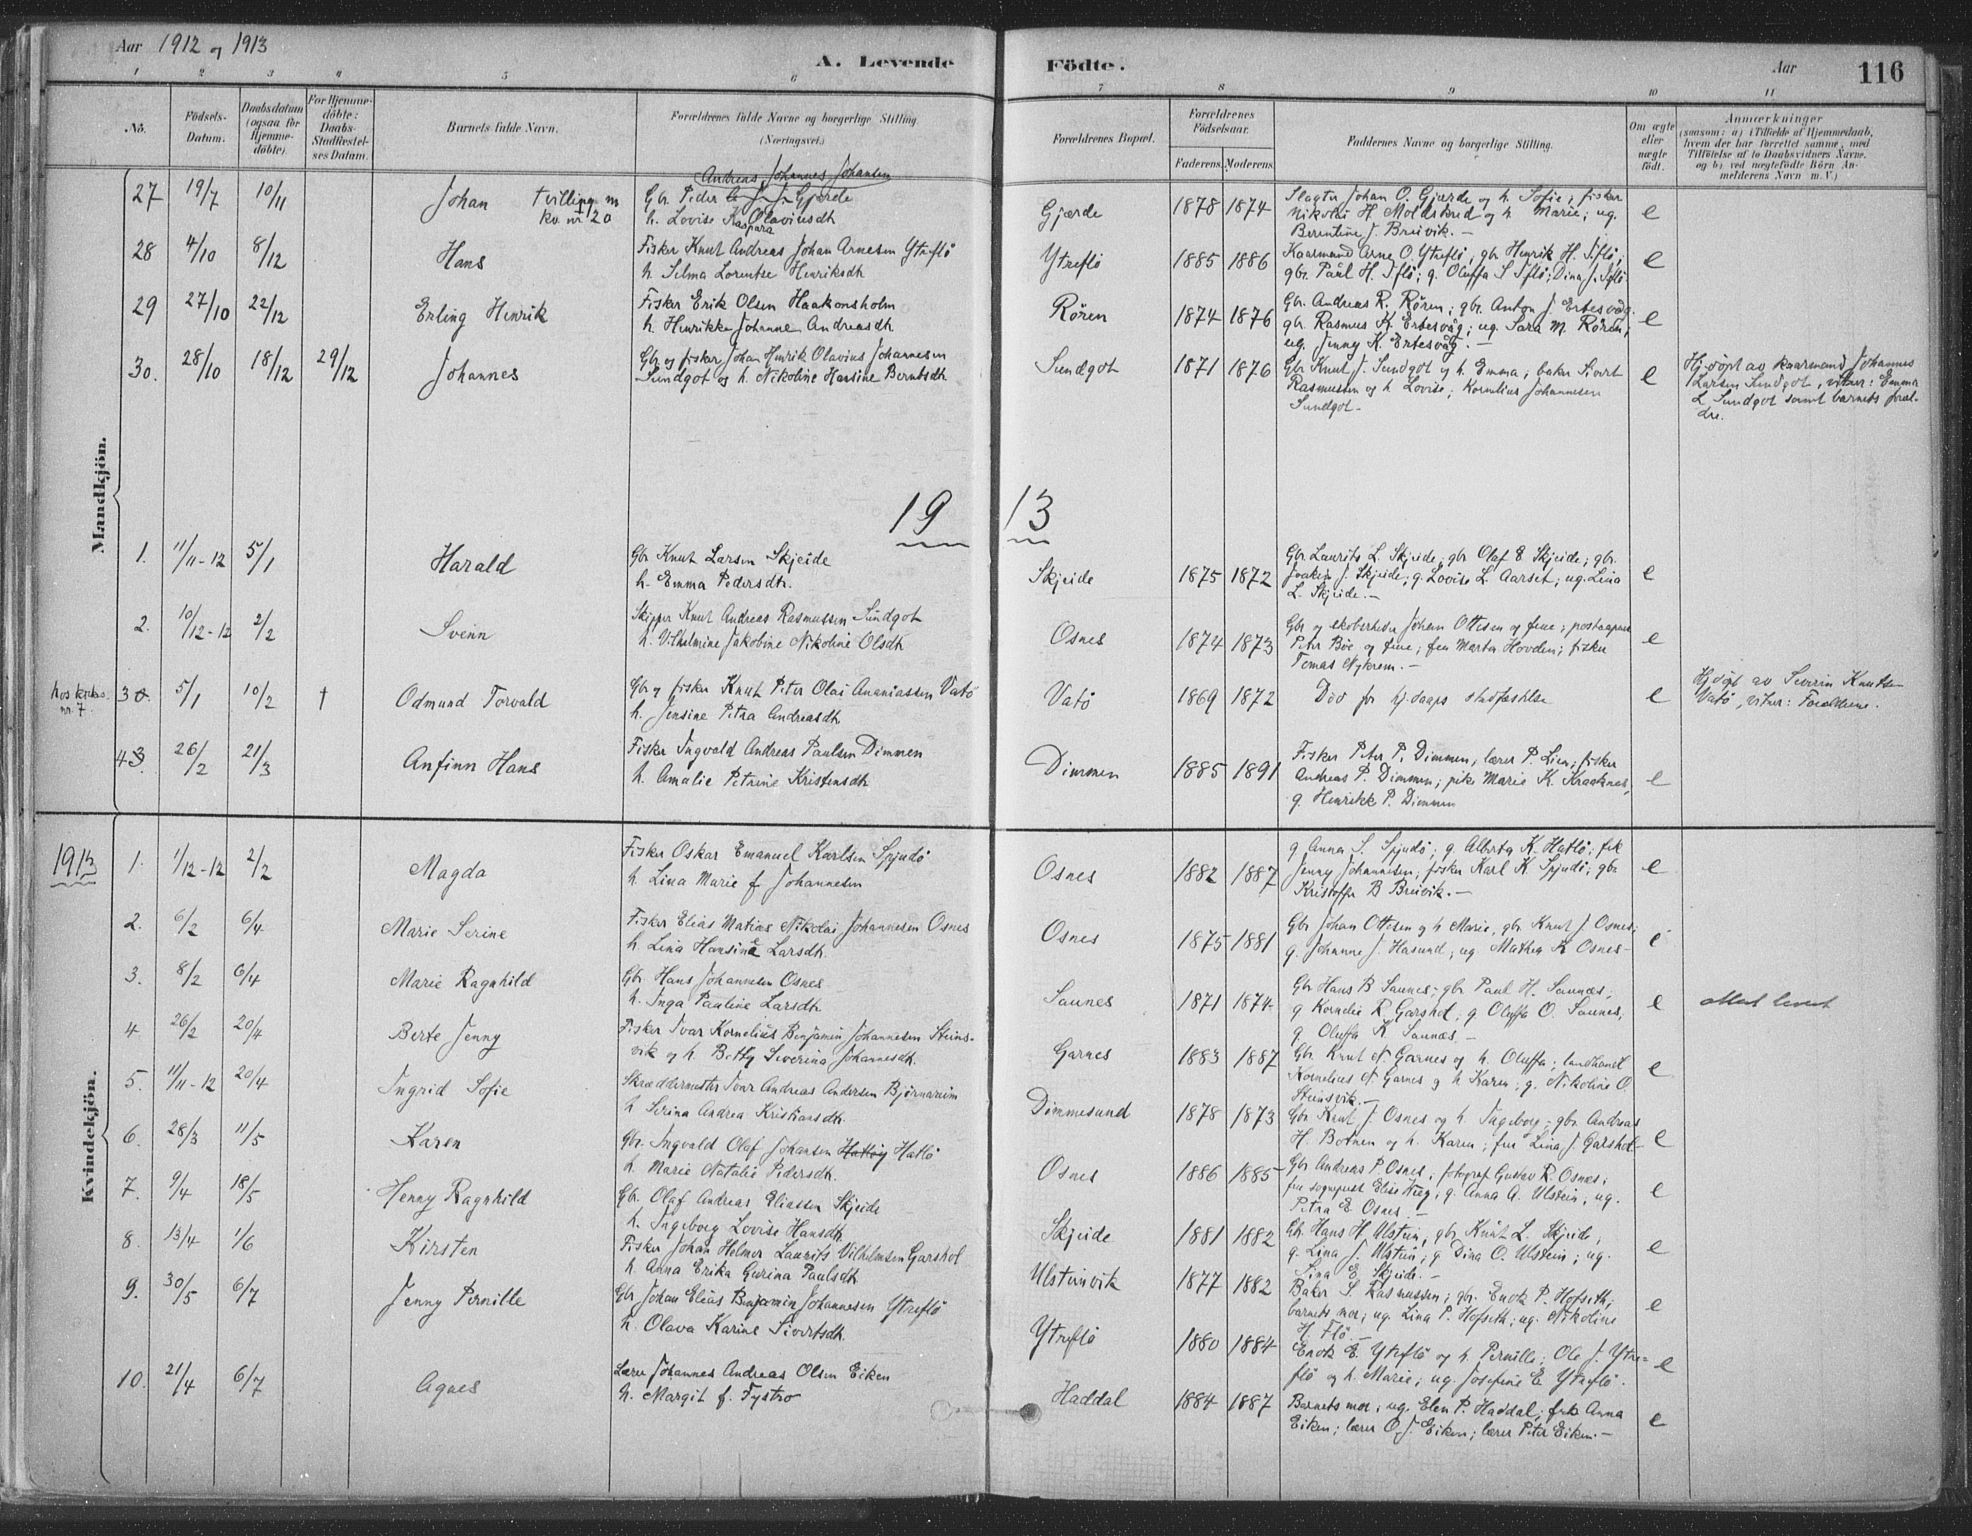 Aar 1912 og 1913
A. Levende Födte.
Aar 116
1 2 3 4 5 6 7 8 9 10 11
No.
Födsels-
Datum.
Daabsdatum
(ogsaa for
Hjemme-
döbte).
For Hjemme-
döbte:
Daabs-
Stadfæstel-
ses Datum.
Barnets fulde Navn.
Forældrenes fulde Navne og borgerlige Stilling
(Næringsvei.)
Forældrenes Bopæl.
Forældrenes
Födselsaar.
Faderens. Moderens.
Faddernes Navne og borgerlige Stilling.
Om ægte
eller
uægte
födt.
Anmærkninger
(saasom: a) i Tilfælde af Hjemmedaab,
hvem der har forrettet samme, med
Tilföielse af to Daabsvidners Navne.
og b) ved uægtefödte Börn An-
melderens Navn m. V.)
Mandkjön.
Andreas Johannes Johansen
27 19/7 10/11 Johan tvilling m
kv nr 20
Gbr. Peder Gjerde
h. Lovise Kaspara Olaviusdtr
Gjærde 1878 1874
Slagter Johan O. Gjærde og h. Sofie; fisker
Nikolai H. Moldskred og h Marie; ug.
Berentine J. Breivik.- e
28 4/10 8/12 Hans
Fisker Knut Andreas Johan Arnesen Ytreflö
h. Selma Lorentse Henriksdtr
Ytreflö 1885 1886
Kaarmand Arne O. Ytreflö, gbr Henrik H. Iflö;
gbr. Paul H. Iflö; g. Oluffa S Iflö; Dina J. Iflö. e
29 27/10 22/12 Erling Henrik
Fisker Erik Olsen Haakonsholm
h. Henrikke Johanne Andreasdtr
Rören 1874 1876
Gbr. Andreas R. Rören; gbr. Anton J. Ertesvåg.
gbr. Rasmus K. Ertesvåg; ug. Sara M. Rören;
ug. Jenny K. Ertesvåg.- e
30. 28/10 18/12 29/12 Johannes
Gbr og fisker Johan Henrik Olavius Johannesen
Sundgot og h. Nikoline Hansine Berntsdtr
Sundgot 1871 1876
Gbr Knut J. Sundgot og h. Emma; baker Sivert
Rasmussen og h Lovise; Kornelius Johannesen
Sundgot- e
Hj.döpt av kaarmand Johannes
Larsen Sundgot, vitner: Emma
L Sundgot samt barnets foræl-
dre.
19 13
1. 11/11-12 5/1 Harald
Gbr. Knut Larsen Skjeide
h. Emma Pedersdtr.
Skjeide 1875 1872
Gbr. Laurits L. Skjeide; gbr Olaf E. Skjeide; gbr.
Joakim J. Skjeide; g. Lovise L. Aarset; ug. Lina
L. Skjeide.- e
2. 10/12-12 2/2 Svenn
Skipper Knut Andreas Rasmussen Sundgot
h. Vilhelmine Jakobine Nikoline Olsdtr
Osnes 1874 1873
Gbr og Johan Ottesen og frue;
Peter Böe og frue; fru Marta Hovden; fisker
Tomas Nykrem.- e
nr. 7 3 5/1 10/2 † Odmund Torvald
Gbr og fisker Knut Peter Olai Ananiassen Vatö
h. Jensine Petra Andreasdtr
Vatö 1869 1872
Död för hj.daaps stadfæstelse e
Hjdöpt av Severin Knutsen
Vatö, vitner: Forældrene.
4 26/2 21/3 Anfinn Hans
Fisker Ingvald Andreas Paulsen Dimmen
h. Amalie Petrine Kristensdtr
Dimmen 1885 1891
Fisker Peter P. Dimmen, lærer P. Lien; fisker
Andreas P. Dimmen; pike Marie K. Kraaknes,
g. Henrikke P. Dimmen e
Kvindekjön.
1913
1. 1/12-12 2/2 Magda
Fisker Oskar Emanuel Karlsen Spjudö
h. Lina Marie f Johannesen
Osnes 1882 1887
g Anna S. Spjudö; g. Alberta K. Hatlö; frk
Jenny Johannesen; fisker Karl K. Spjudö; gbr
Kristoffer B Breivik.- e
2. 6/2 6/4 Marie Serine
Fisker Elias Matias Nikolai Johannesen Osnes
h. Lina Hansine Larsdtr.
Osnes 1875 1881
Gbr Johan Ottesen og h Marie, gbr. Knut J. Osnes;
g. Johanne J. Hasund; ug Mathea K Osnes- e
3. 8/2 6/4 Marie Ragnhild
Gbr. Hans Johannesen Osnes
h. Inga Pauline Larsdtr
Saunes 1871 1874
Gbr Hans B Saunes; gbr Paul H. Saunæs;
g Kornelie R Garshol; g Oluffa O. Saunes,
g. Oluffa K. Saunæs- e
attest levert
4 26/2 20/4 Berte Jenny
Fisker Ivar Kornelius Benjamin Johannesen Steins-
vik og h. Betty Severina Johannesdtr.
Garnes 1883 1887
Gbr. Knut N. Garnes og h. Oluffa; landhandl
Kornelius N. Garnes og h Karen; g. Nikoline O.
Steinsvik.- e
5. 11/11-12 20/4 Ingrid Sofie
Skræddermester Ivar Andreas Andersen Björnarnum
h Serina Andrea Kristiansdtr.
Dimmesund 1878 1873
Gbr Knut J. Osnes og h. Ingeborg; gbr. Andreas
H. Botnen og h. Karen; fru Lina J. Garshol- e
6. 28/3 11/5 Karen
Gbr. Ingvald Olaf Johansen Hatlöy Hatlö
h. Marie Natalie Pedersdtr.
Osnes 1886 1885
Gbr Andreas P. Osnes; fotograf Gustav R. Osnes;
fru sogneprest Elise Krag; g. Anna A. Ulstein; ug.
Petra E Osnes.- e
7. 9/4 18/5 Henny Ragnhild
Gbr. Olaf Andreas Eliassen Skjeide
h. Ingeborg Lovise Hansdtr
Skjeide 1881 1882
Gbr. Hans H. Ulstein, gbr. Knut L. Skjeide;
g. Lina J. Ulstein; g Dina O. Ulstein; ug.
Lina E. Skjeide.- e
8. 13/4 1/6 Kirsten
Fisker Johan Helmer Laurits Vilhelmsen Garshol
h Anna Erika Gurina Paulsdtr
Ulsteinvik 1877 1882
Baker S Rasmussen; gbr. Enok P. Hofseth;
barnets mor; ug. Lina P. Hofseth; ug. Nikoline
H. Flö.- e
9. 30/5 6/7 Jenny Pernille
Gbr. Johan Elias Benjamin Johannesen Ytreflö
h. Olava Karine Sivertsdtr.
Ytreflö 1880 1884
Enok E. Ytreflö og h. Pernille; Ole J. Ytre-
flö og h. Marie; ug. Josefine E Ytreflö. e
10. 21/4 6/7 Agnes
Lærer Johannes Andreas Olsen Eiken
h. Margit f. Fystro
Haddal 1884 1887
Barnets mor; ug. Elen P. Haddal; frk Anna
Eiken; lærer O. J. Eiken; lærer Peter Eiken.- e